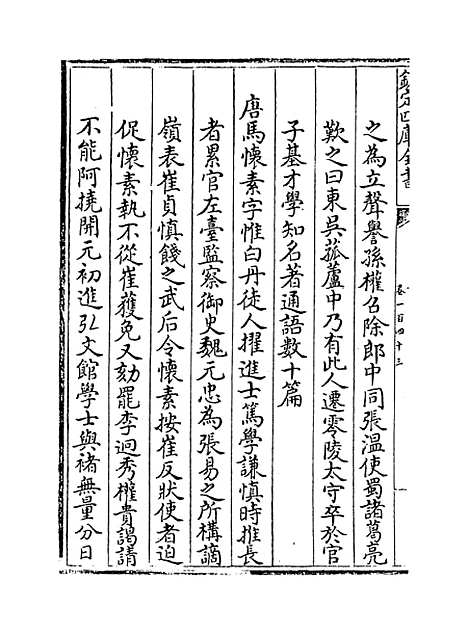 欽定四庫全書
卷一百四十三
之為立聲譽孫權召除郎中同張溫使蜀諸葛亮
歎之曰東吳菰蘆中乃有此人遷零陵太守卒於官
子基才學知名著通語數十篇
唐馬懷素字惟白丹徒人擢進士篤學謙慎時推長
者累官左臺監察御史魏元忠為張易之所構謫
嶺表崔貞慎餞之武后令懷素按崔反狀使者迫
促懷素執不從崔獲免又劾罷李迥秀權貴謁請
不能阿撓開元初進弘文館學士與褚無量分日